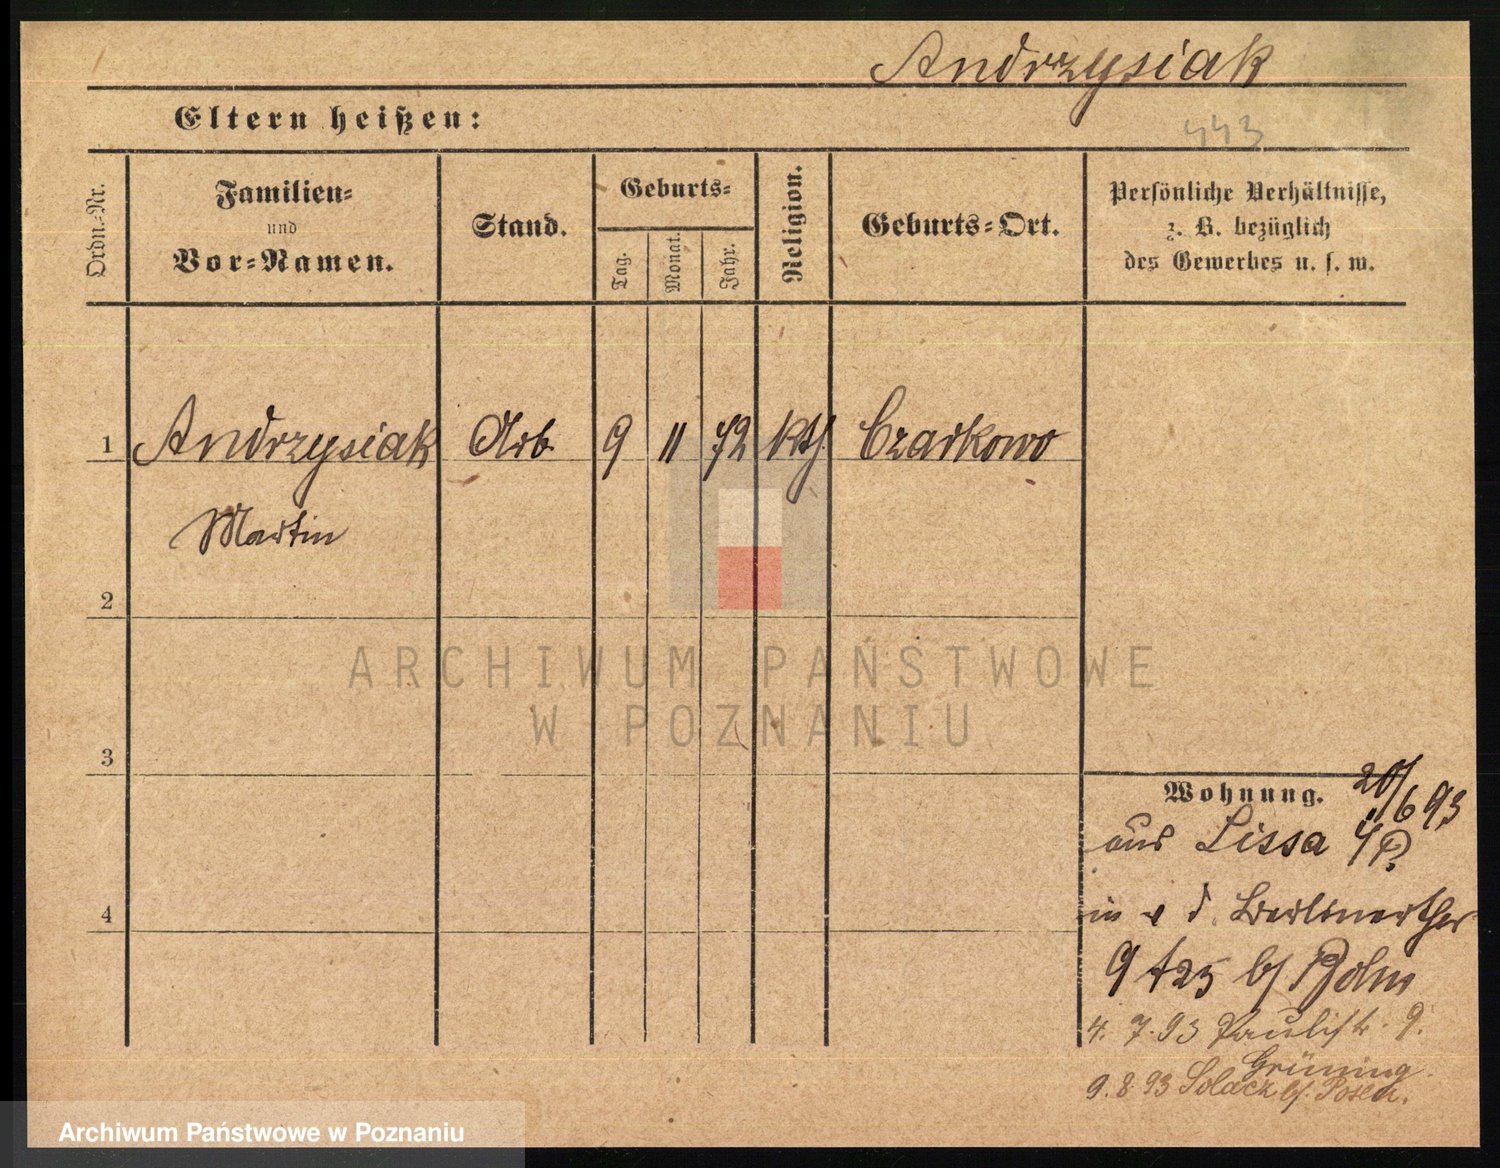 Andrzysiak
Eltern heißen:
443
Ordn.-Nr.
Familien-
und
Vor-Namen.
Stand.
Geburts-
Tag.
Monat.
Jahr.
Religion.
Geburts-Ort.
Persönliche Verhältnisse,
z. B. bezüglich
des Gewerbes u. s. w.
1 Andrzysiak Arb. 9 11 72 kth. Czarkowo
Martin
2
ARCHIWUM PAŃSTWOWE
W POZNANIU
3
Wohnung. 20/6 93
aus Lissa
4
in v d. Berlinerthor
9 b/
4. 7. 93 Paulistr. 9.
Grüning.
9. 8. 93 Solacz b/. Posen.
Archiwum Państwowe w Poznaniu